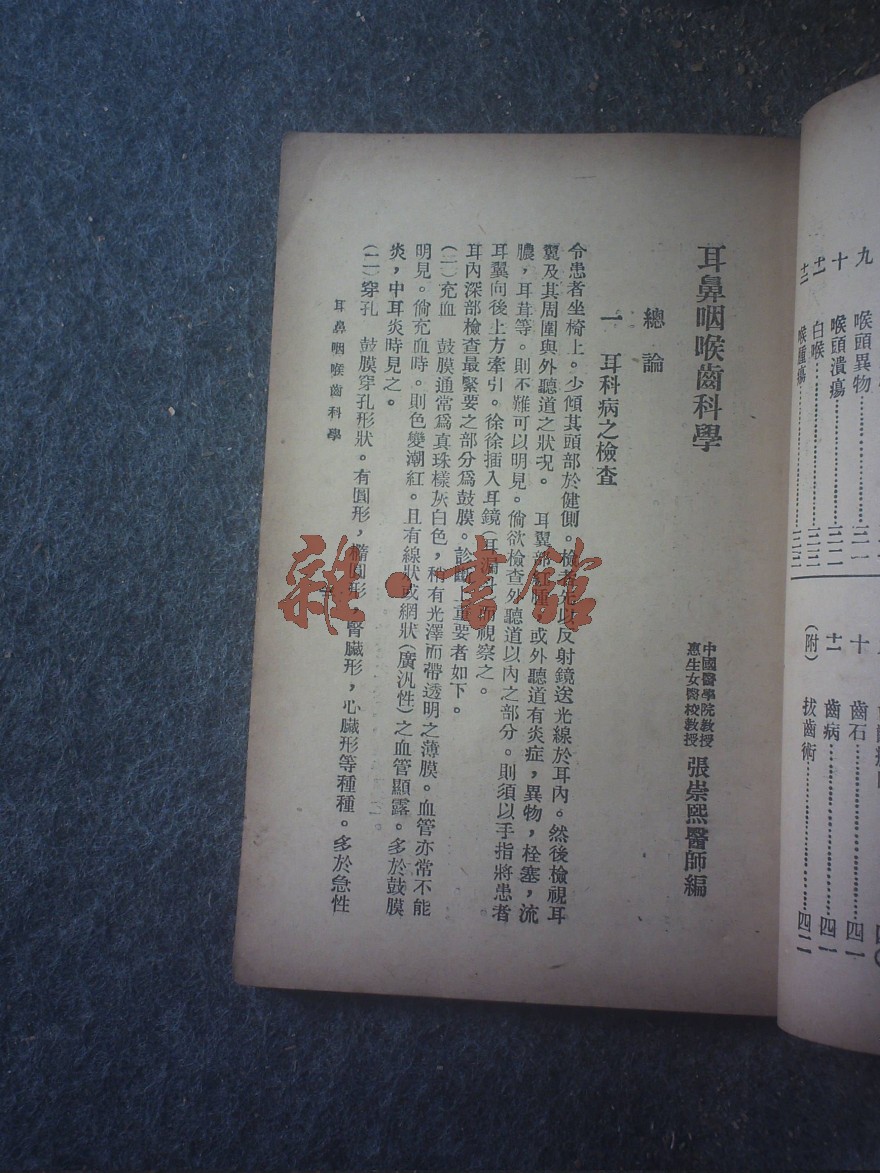 耳鼻咽喉齒科學
中國醫學院教授
惠生女醫校教授
張崇熙醫師編
總論
一 耳科病之檢査
令患者坐椅上。少傾其頭部於健側。檢者先以反射鏡送光線於耳內。然後檢視耳
翼及其周圍與外聽道之狀況。耳翼部紅腫，或外聽道有炎症，異物，栓塞，流
膿，耳茸等。則不難可以明見。倘欲檢查外聽道以內之部分。則須以手指將患者
耳翼向後上方牽引。徐徐插入耳鏡(耳漏斗)而視察之。
耳內深部檢查最緊要之部分爲鼓膜。診斷上重要者如下。
(一)充血 鼓膜通常爲真珠樣灰白色，稍有光澤而帶透明之薄膜。血管亦常不能
明見。倘充血時。則色變潮紅。且有線狀或網狀(廣汎性)之血管顯露。多於鼓膜
炎，中耳炎時見之。
(二)穿孔 鼓膜穿孔形狀。有圓形，橢圓形，腎臟形，心臟形等種種。多於急性
耳鼻咽喉齒科學
九 喉頭異物 三一
十 喉頭潰瘍 三二
十一 白喉 三三
十二 喉腫瘍 三三
十 齒石 四一
十一 齒病 四一
(附) 拔齒術 四二
雜·書館